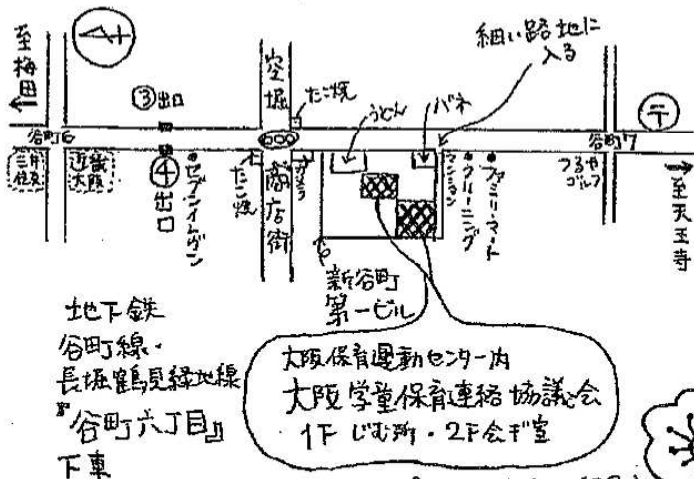 至梅田
③出口
空堀
商店街
たこ焼
うどん
バネ
細い路地に
入る
〒
谷町6
谷町7
三井
住友
近畿
大阪
④出口
セブンイレブン
たこ焼
マンション
クリーニング
ファミリーマート
つるや
ゴルフ
至天王寺
新谷町
第一ビル
地下鉄
谷町線・
長堀鶴見緑地線
『谷町六丁目』
下車
大阪保育運動センター内
大阪学童保育連絡協議会
1F じむ所・2F会ギ室